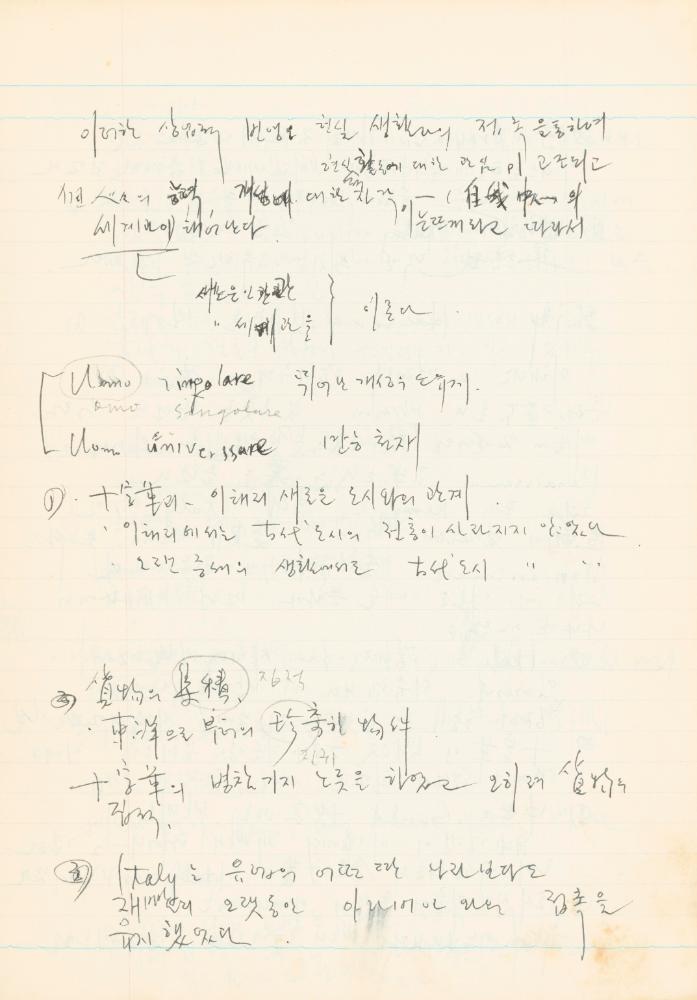 이러한 상업적 번영은 현실 생활과의 접촉을통하여
현실 활동에 대한 관심이 고조되고
個人々의 능력 개성에 대한 자각 이—( 自我中心의
세계관이 태어난다. 눈뜨게되고 따라서
새로운 인간관
〃 세계관을 } 이룬다.
Uomo singolare 뛰어난 개성
omo singolare
Uomo universsare 만능 천재
① · 十字軍과 이태리 새로운 도시와의 관계.
· 이태리에서는 古代도시의 전통이 사라지지 않았다
· 오랜 중세의 생활에서도 古代도시 〃 〃
② 貨物의 集積. 집적
· 東洋으로 부터의 한 物件.
十字軍의 병참기지 노릇을 하였고 오히려 貨物의
집적.
③ Italy는 유럽의 어떤 딴 나라보다도
오랫동안 아라비아와의 접촉을
유지했었다.